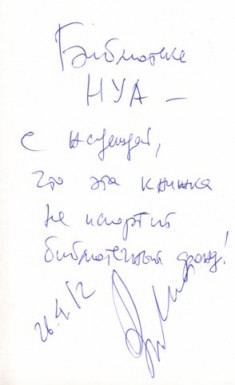 Библиотеке
НУА –
с надеждой,
что эта книжка
не испортит
библиотечный фонд!
26.4.12